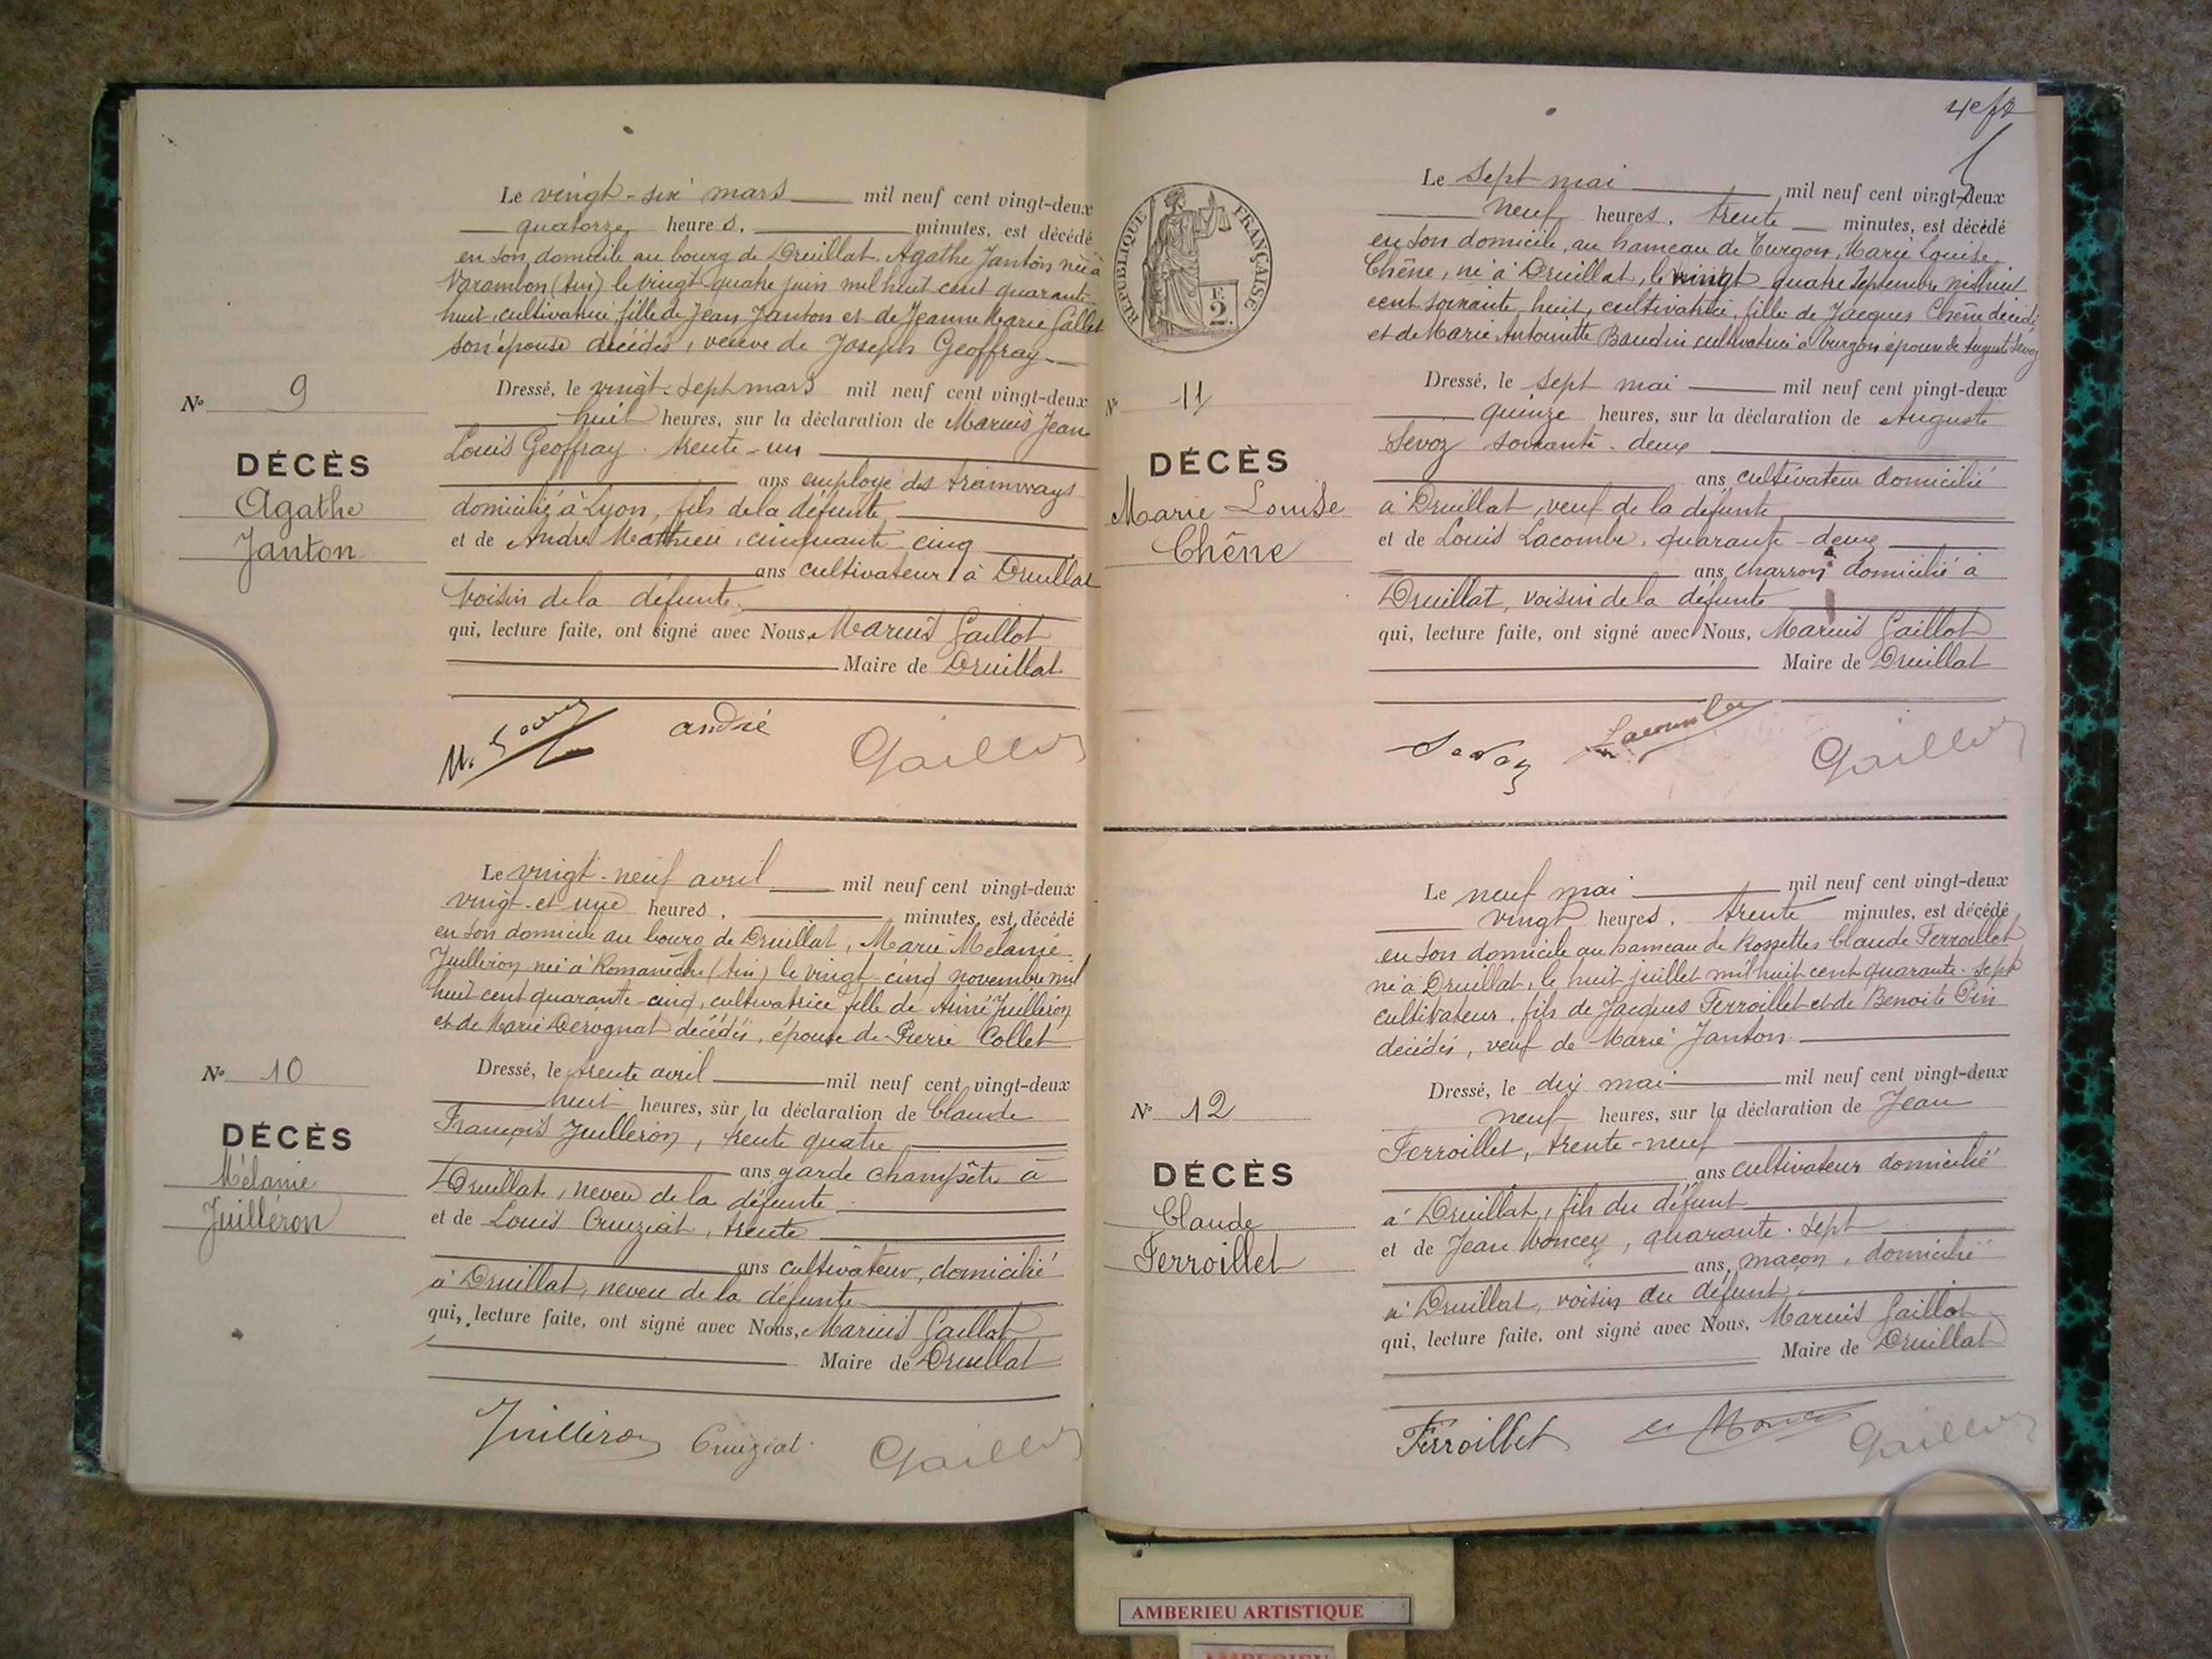 Le vingt-six mars mil neuf cent vingt-deux
quatorze heures, minutes, est décédé
en son domicile au bourg de Druillat, Agathe Janton née à
Varambon (Ain) le vingt quatre juin mil huit cent quarante
huit, cultivatrice, fille de Jean Janton et de Jeanne Marie Gallet
son épouse décédés, veuve de Joseph Geoffray
Nº 9
DÉCÈS
Agathe
Janton
Dressé, le vingt-sept mars mil neuf cent vingt-deux
huit heures, sur la déclaration de Marius Jean
Louis Geoffray. trente-un
ans employé des tramways
domicilié à Lyon, fils de la défunte
et de André Matthieu, cinquante-cinq
ans cultivateur à Druillat
voisin de la défunte.
qui, lecture faite, ont signé avec Nous, Marius Gaillot
Maire de Druillat
andré
Gaillot
Le vingt-neuf avril mil neuf cent vingt-deux
vingt-et une heures, minutes, est décédé
en son domicile au bourg de Druillat, Marie Mélanie
Juilléron née à Romanèche (Ain) le vingt cinq novembre mil
huit cent quarante-cinq, cultivatrice fille de Aimé Juilléron
et de Marie Derognat décédés, épouse de Pierre Collet
Nº 10
DÉCÈS
Mélanie
Juilléron
Dressé, le trente avril mil neuf cent vingt-deux
huit heures, sur la déclaration de Claude
François Juilléron, trente quatre
ans garde champêtre à
Druillat, neveu de la défunte
et de Louis Cruiziat, trente
ans cultivateur, domicilié
à Druillat, neveu de la défunte
qui, lecture faite, ont signé avec Nous, Marius Gaillot
Maire de Druillat
Juilléron Cruiziat Gaillot
RÉPUBLIQUE FRANÇAISE
F.
2.
Le sept mai mil neuf cent vingt-deux
neuf heures, trente minutes, est décédé
en son domicile, au hameau de Turgon, Marie Louise
Chêne, né à Druillat, le vingt quatre septembre mil huit
cent soixante, huit, cultivatrice, fille de Jacques Chêne décédé
et de Marie Antoinette Baudin cultivatrice à Turgon épouse de Auguste Sevoz
Nº 11
DÉCÈS
Marie Louise
Chêne
Dressé, le sept mai mil neuf cent vingt-deux
quinze heures, sur la déclaration de Auguste
Sevoz soixante-deux
ans, cultivateur domicilié
à Druillat, veuf de la défunte
et de Louis Lacombe, quarante-deux
ans, charron domicilié à
Druillat, voisin de la défunte
qui, lecture faite, ont signé avec Nous, Marius Gaillot
Maire de Druillat
Sevoz Lacombe Gaillot
Le neuf mai mil neuf cent vingt-deux
vingt heures, trente minutes, est décédé
en son domicile au hameau de Rossettes Claude Ferroillet
né à Druillat, le huit juillet mil huit cent quarante-sept
cultivateur, fils de Jacques Ferroillet et de Benoite Pin
décédés, veuf de Marie Janton
Nº 12
DÉCÈS
Claude
Ferroillet
Dressé, le dix mai mil neuf cent vingt-deux
neuf heures, sur la déclaration de Jean
Ferroillet, trente-neuf
ans cultivateur domicilié
à Druillat, fils du défunt
et de Jean Moncey, quarante-sept
ans, maçon, domicilié
à Druillat, voisin du défunt,
qui, lecture faite, ont signé avec Nous, Marius Gaillot
Maire de Druillat
Ferroillet Gaillot
AMBERIEU ARTISTIQUE
AMBERIEU